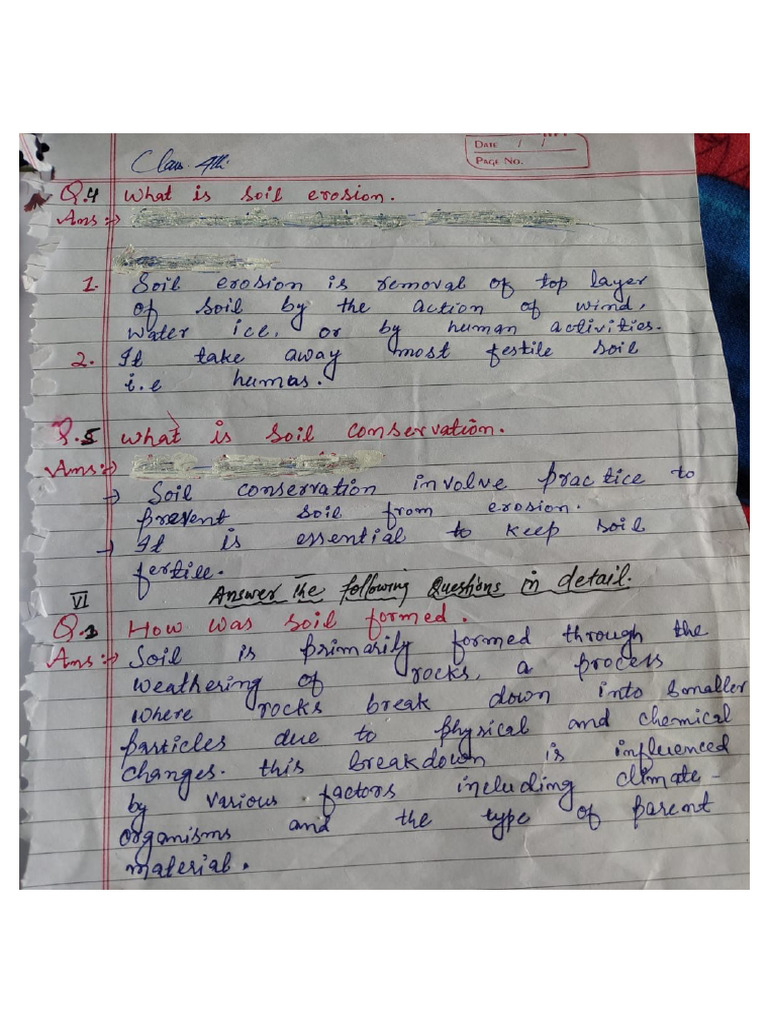 Class 4th
DATE / /
PAGE NO.
Q.4 What is soil erosion.
Ans:->
1. Soil erosion is removal of top layer
of soil by the action of wind,
water ice, or by human activities.
2. It take away most festile soil
i.e humas.
Q.5 What is soil conservation.
Ans:->
→ Soil conservation involve practice to
prevent soil from erosion.
→ It is essential to keep soil
fertile.
VI Answer the following Questions in detail.
Q.1 How was soil formed.
Ans:-> Soil is primarily formed through the
weathering of rocks, a process
where rocks break down into smaller
particles due to physical and chemical
changes. this breakdown is influenced
by various factors including climate-
organisms and the type of parent
material.